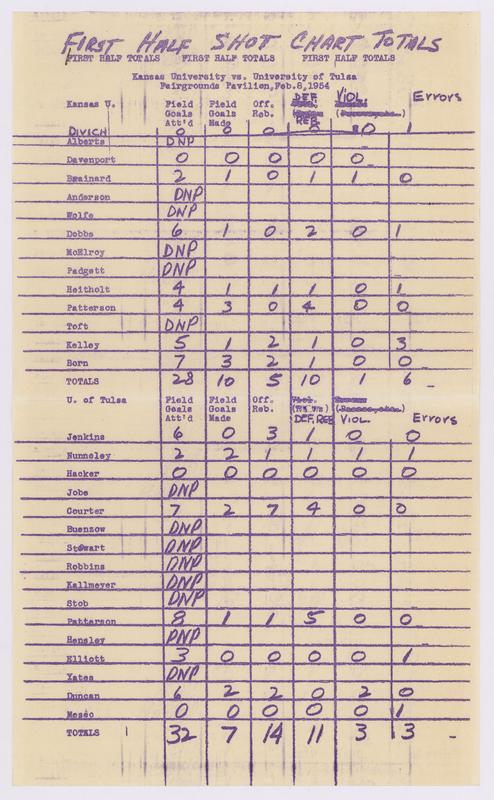 FIRST HALF SHOT CHART TOTALS
FIRST HALF TOTALS FIRST HALF TOTALS FIRST HALF TOTALS
Kansas University vs. University of Tulsa
Fairgrounds Pavilion, Feb. 8, 1954
Kansas U. Field Goals Att'd Field Goals Made Off. Reb. DEF. REB. VIOL. Errors
DIVICH 0 0 0 0 0 1
Alberts DNP
Davenport 0 0 0 0 0
Brainard 2 1 0 1 1 0
Anderson DNP
Wolfe DNP
Dobbs 6 1 0 2 0 1
McElroy DNP
Padgett DNP
Heitholt 4 1 1 1 0 1
Patterson 4 3 0 4 0 0
Toft DNP
Kelley 5 1 2 1 0 3
Born 7 3 2 1 0 0
TOTALS 28 10 5 10 1 6
U. of Tulsa Field Goals Att'd Field Goals Made Off. Reb. DEF. REB VIOL. Errors
Jenkins 6 0 3 1 0 0
Nunneley 2 2 1 1 1 1
Hacker 0 0 0 0 0 0
Jobe DNP
Courter 7 2 7 4 0 0
Buenzow DNP
Stewart DNP
Robbins DNP
Kallmeyer DNP
Stob DNP
Patterson 8 1 1 5 0 0
Hensley DNP
Elliott 3 0 0 0 0 1
Yates DNP
Duncan 6 2 2 0 2 0
Mosec 0 0 0 0 0 1
TOTALS 32 7 14 11 3 3